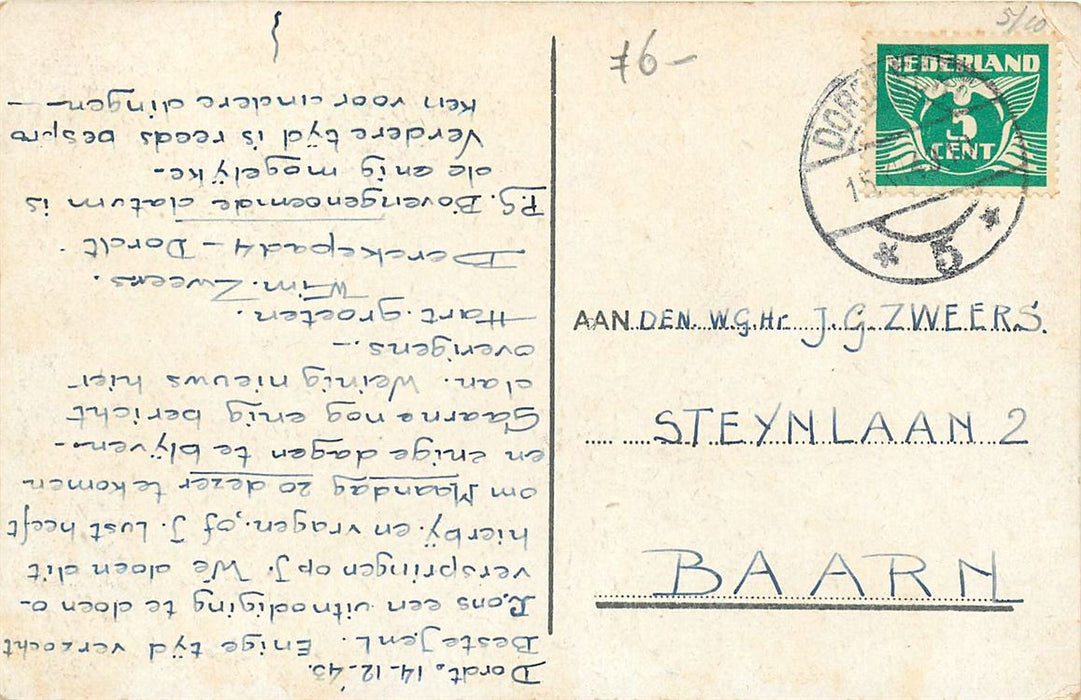 Dordt, 14-12-'43.
Beste J en L. Enige tÿd verzocht
R. ons een uitnodiging te doen o-
verspringen op J. We doen dit
hierbÿ en vragen, of J. Lust heeft
om Maandag 20 dezer te komen
en enige dagen te blÿven.-
Gaarne nog enig bericht
dan. Weinig nieuws hier
overigens.-
Hart. groeten.
Wim. Zweers.
Berckepad 4 - Dordt.
P.S. Bovengenoemde datum is
de enig mogelÿke.-
Verdere tÿd is reeds bespro
ken voor andere dingen-
76-
5/00
NEDERLAND
5
CENT
DORDRECHT
5
AAN DEN W.G.Hr J.G. ZWEERS.
STEYNLAAN 2
BAARN